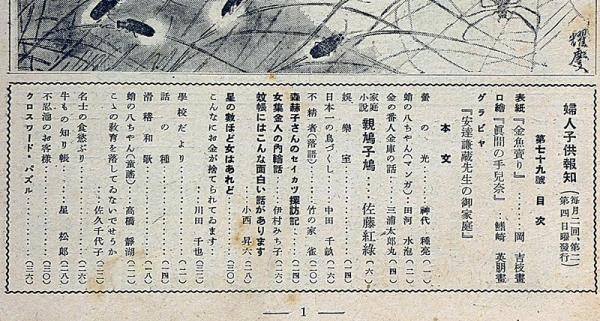 耀慶
婦人子供報知
(毎月二回、第二、第四日曜發行)
第七十九號 目次
表紙『金魚賣り』……岡 吉枝畫
口繪『眞間の手兒奈』……鰭崎 英朋畫
グラビヤ
『安達謙蔵先生の御家庭』
本文
螢の光……神代 種亮…(一)
蛸の八ちやん(マンガ)…田河 水泡…(二)
金の番人金庫の話……三浦太郎丸…(四)
家庭小說 親鳩子鳩……佐藤紅綠…(六)
娯樂室……(四)
日本一の島づくし…中田 千畝…(六)
不精者(落語)……竹の家 雀…(二〇)
森赫子さんのセイカツ探訪記…
女集金人の内緒話…伊村みち子…(二四)
蚊帳にはこんな面白い話があります
……小西 昇六…(二八)
星の數ほど女はあれど……(三〇)
こんなにお金が捨てられてゐます…
……川田 千也…(三)
學校だより……
話の種……(四)
滑稽和歌……(一八)
蛸の八ちやん(童謠)…高橋 靜湖…(二)
こゝの教育を落してゐないでせうか
……佐久千代子…
名士の食慾ぶり……
牛もの知り帳……星 松郎…
不忍池のお客様……
クロスワード・パズル……(三六)
1